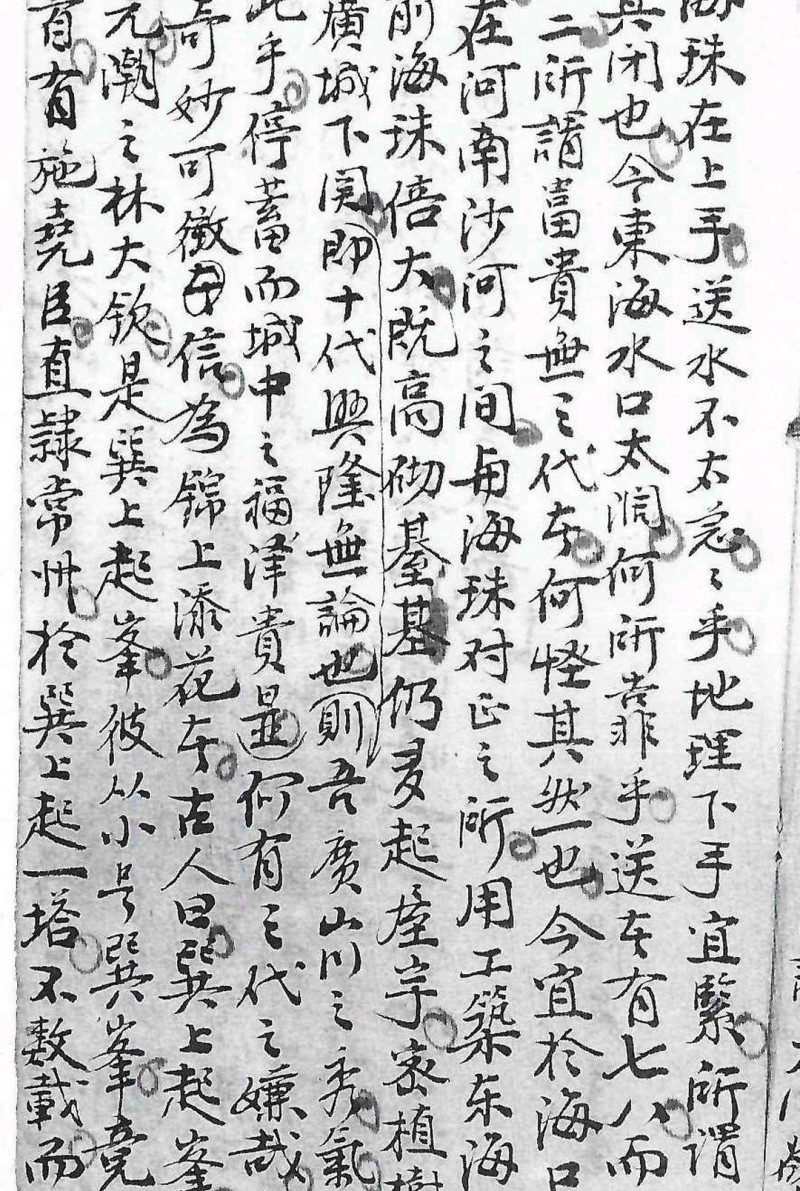 海珠在上手送水不太急〻乎地理下手宜緊所謂
其閉也今東海水口太濶何所靠乎送去有七八而
二所謂富貴無三代夲何怪其然也今宜於海口
在河南沙河之间與海珠对正之所用工築东海
前海珠倍大既高砌臺基仍多起屋宇密植樹
廣城下関即十代興隆無論也則吾廣山川之秀氣
此乎停蓄而城中之福泽貴显何有三代之嫌哉
奇妙可徵夲信為錦上添花夲古人曰巽上起峯
元潮之林大欽是巽上起峯彼从小号巽峯竟
首有施堯臣直隷常州於巽上起一塔不数載而